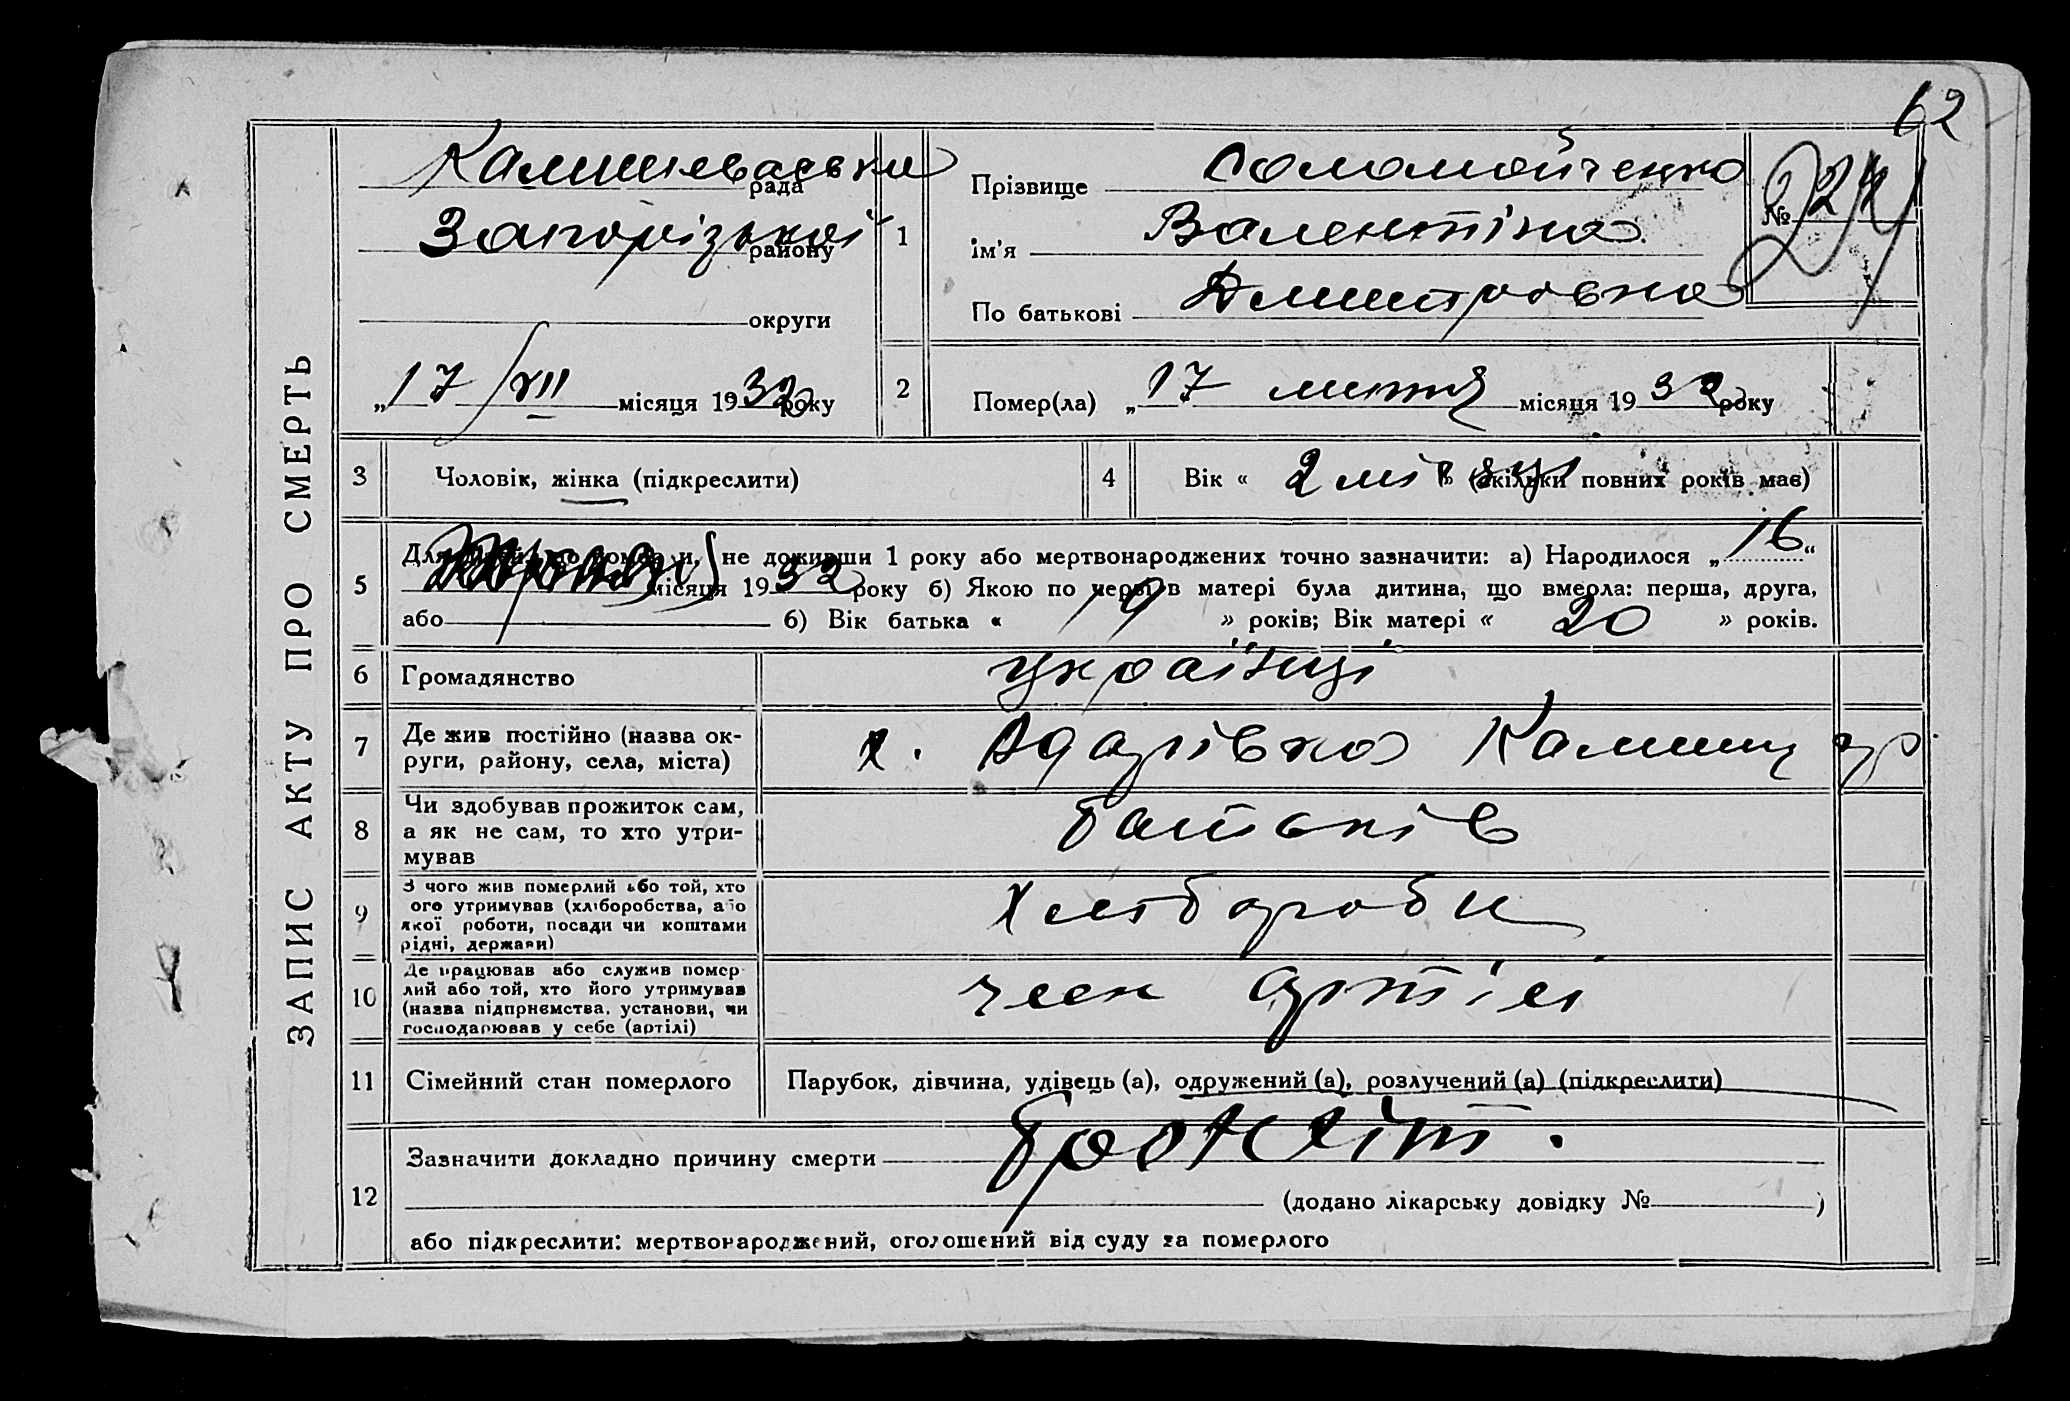 62
ЗАПИС АКТУ ПРО СМЕРТЬ
рада
Запорізької
району
округи
„17 VII місяця 1932 року
1
Прізвище Соломойченко
Ім'я Валентіна
По батькові Дмитровна
№ 24
2
Помер(ла) „17 липня місяця 1932 року
3 Чоловік, жінка (підкреслити)
4 Вік « 2 місяці » (скільки повних років має)
5 не доживши 1 року або мертвонароджених точно зазначити: а) Народилося „16“
травня місяця 1932 року б) Якою по черві в матері була дитина, що вмерла: перша, друга,
або б) Вік батька « 19 » років; Вік матері « 20 » років.
6 Громадянство українці
7 Де жив постійно (назва ок-
руги, району, села, міста)
х.
8 Чи здобував прожиток сам,
а як не сам, то хто утри-
мував
батьків
9 З чого жив померлий або той, хто
ого утримував (хліборобства, або
якої роботи, посади чи коштами
рідні, держави)
хлібороби
10 Де працював або служив помер-
лий або той, хто його утримував
(назва підприємства, установи, чи
господарював у себе (артілі)
член артілі
11 Сімейний стан померлого Парубок, дівчина, удівець (а), одружений (а), розлучений (а) (підкреслити)
12 Зазначити докладно причину смерти бронхіт.
(додано лікарську довідку № )
або підкреслити: мертвонароджений, оголошений від суду за померлого